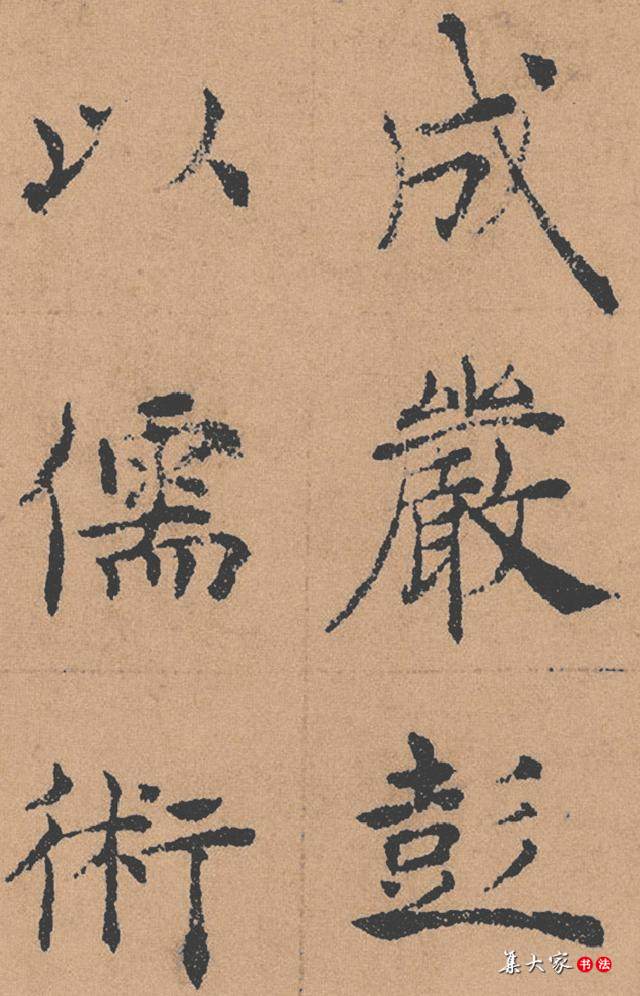 成嚴彭
以儒術
集大家书法